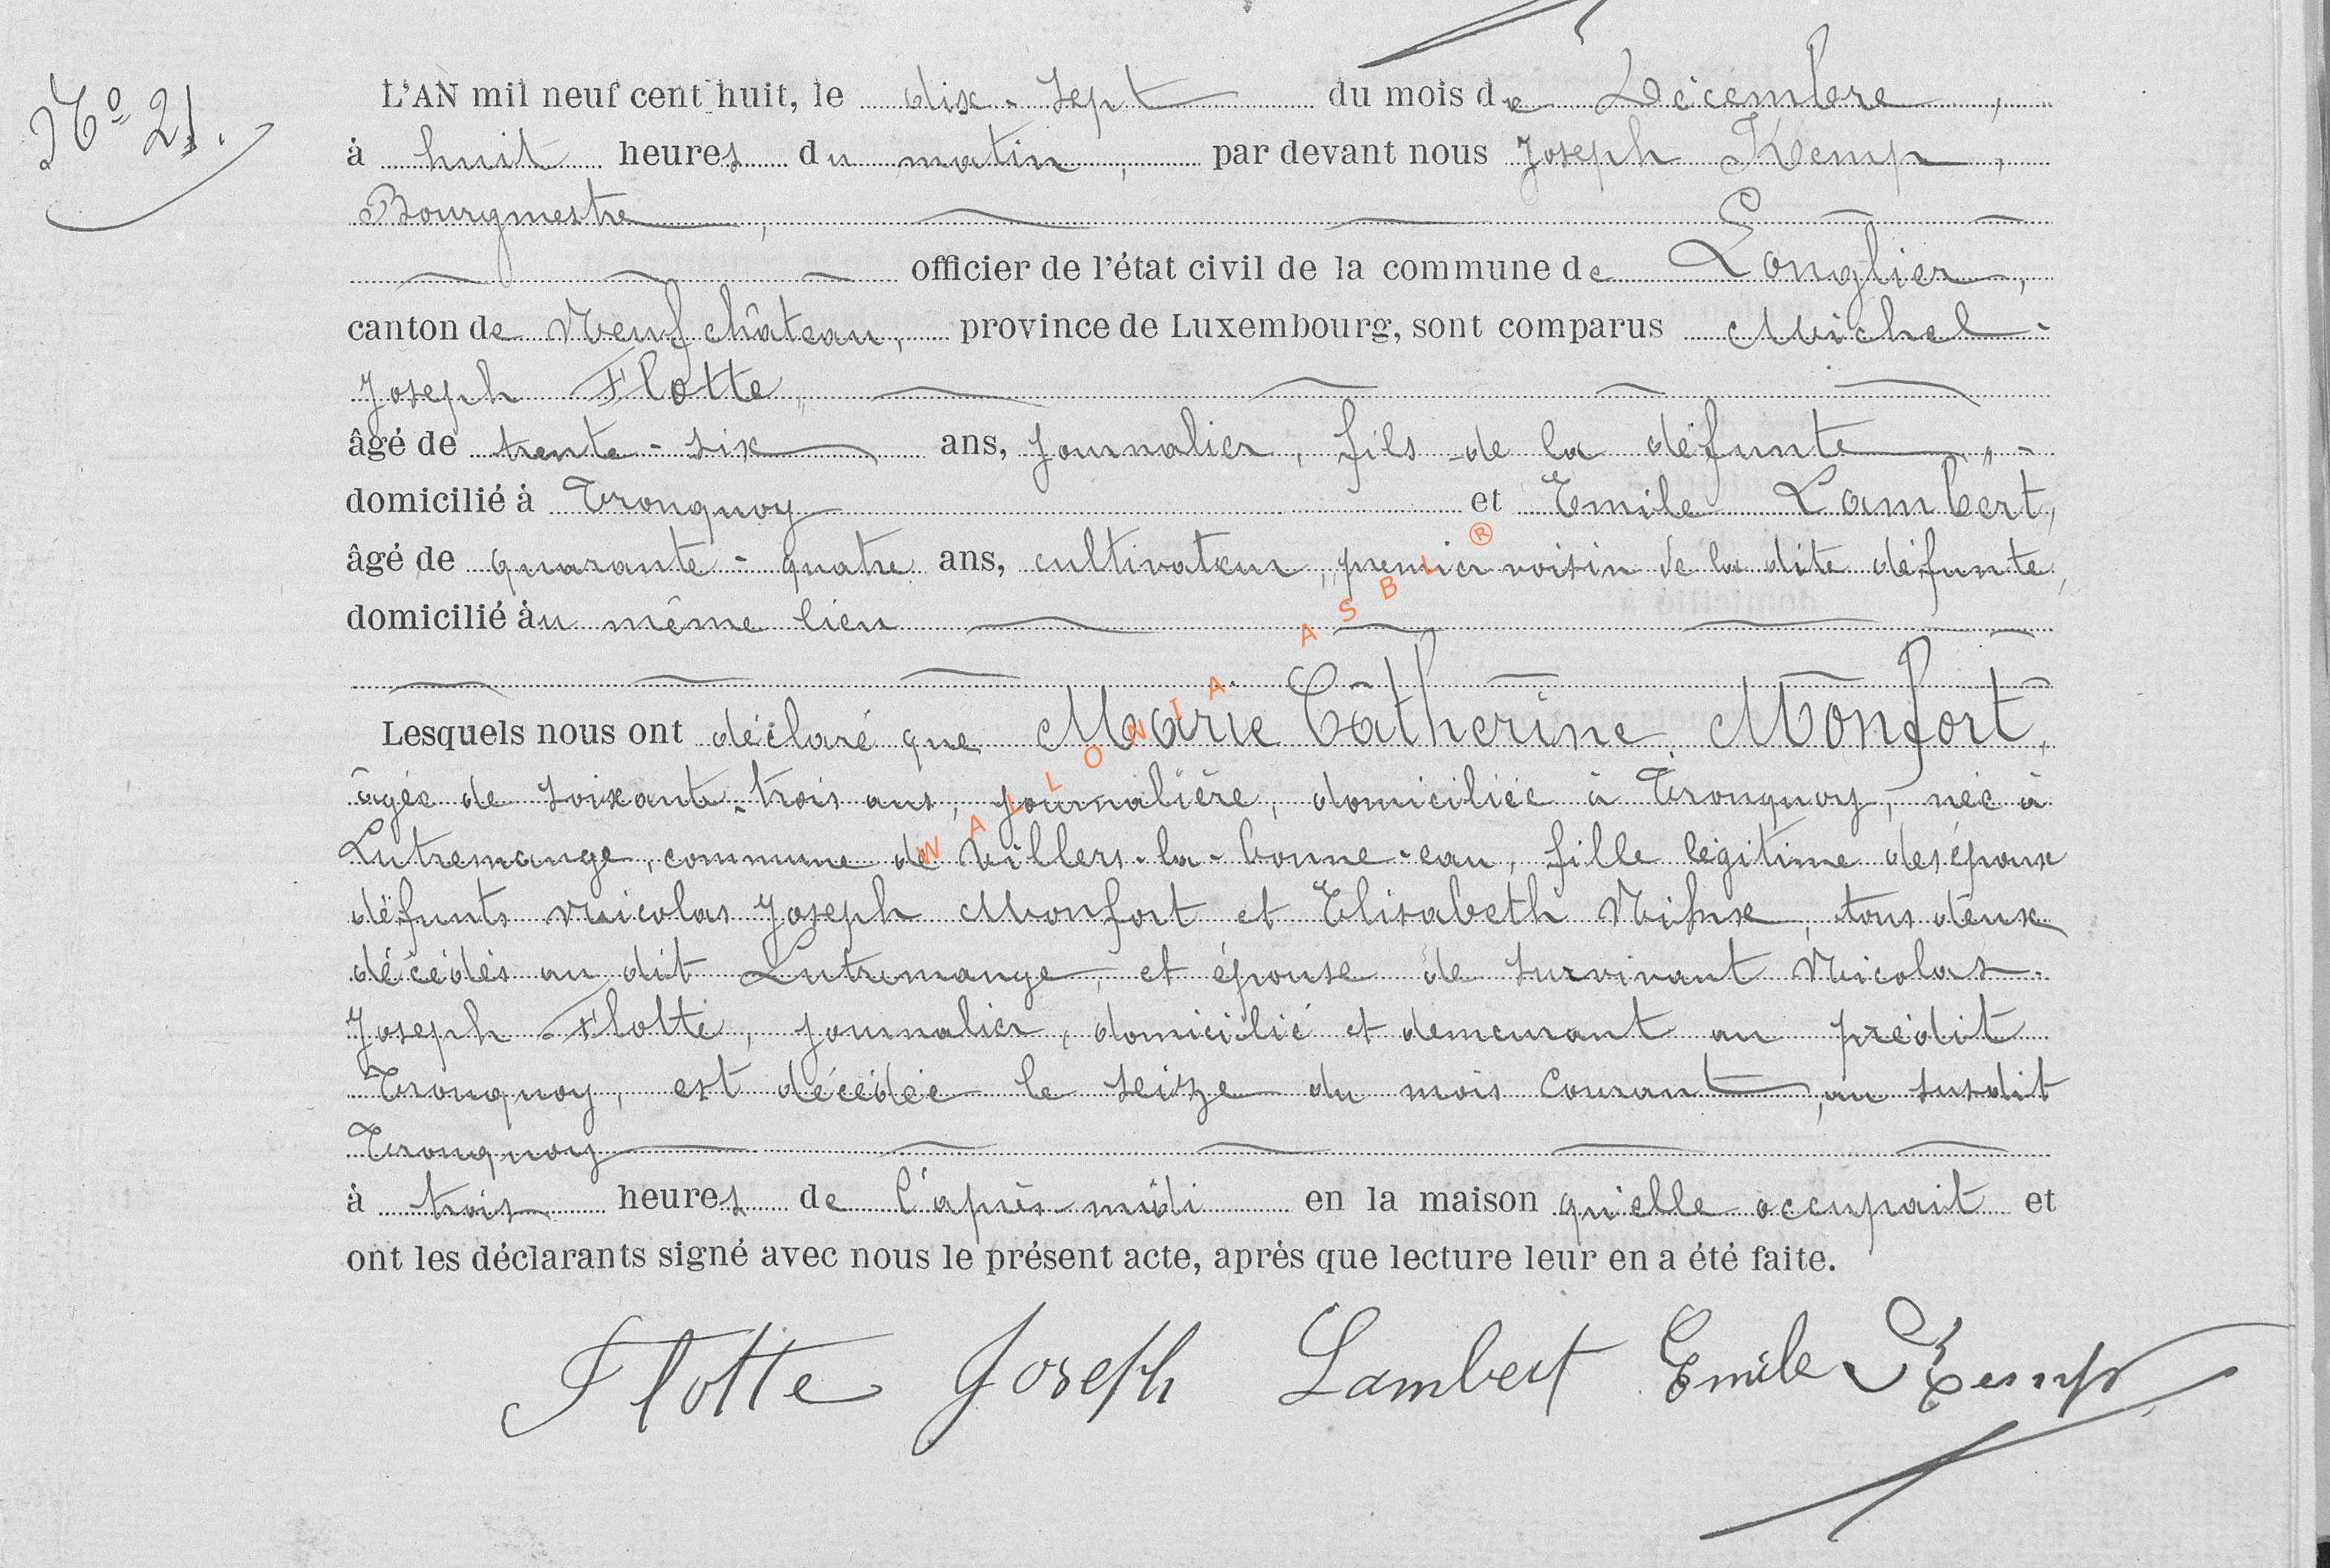 No 21.
L'AN mil neuf cent huit, le dix-sept du mois de Décembre,
à huit heures du matin, par devant nous Joseph Kemp,
Bourgmestre,
officier de l'état civil de la commune de Longlier,
canton de Neufchâteau, province de Luxembourg, sont comparus Michel-
Joseph Flotte,
âgé de trente-six ans, journalier, fils de la défunte,
domicilié à Tronquoy et Emile Lambert,
âgé de quarante-quatre ans, cultivateur, premier voisin de la dite défunte,
domicilié au même lieu
Lesquels nous ont déclaré que Marie Catherine Monfort,
âgée de soixante-trois ans, journalière, domiciliée à Tronquoy, née à
Lutremange, commune de Villers-la-bonne-eau, fille légitime des époux
défunts Nicolas Joseph Monfort et Elisabeth, tous deux
décédés au dit Lutremange, et épouse de survivant Nicolas-
Joseph Flotte, journalier, domicilié et demeurant au prédit
Tronquoy, est décédée le seize du mois courant, au susdit
Tronquoy
à trois heures de l'après-midi en la maison qu'elle occupait et
ont les déclarants signé avec nous le présent acte, après que lecture leur en a été faite.
Flotte Joseph Lambert Emile Kemp
WALLONIA ASBL ®